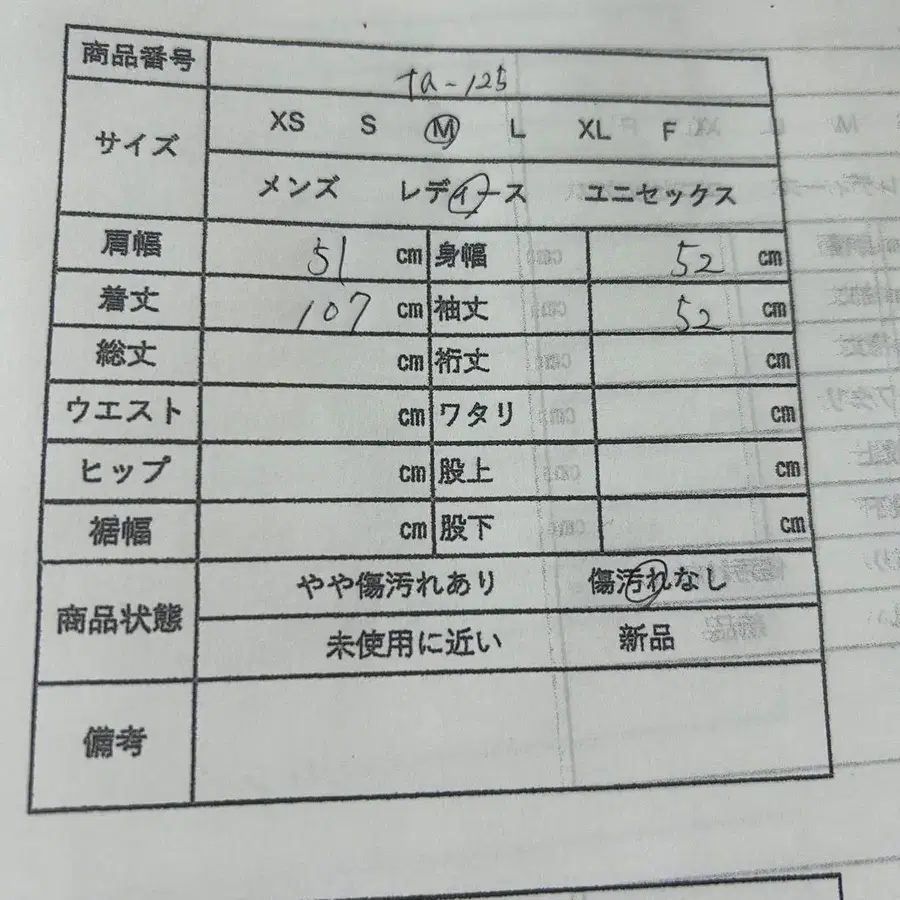 商品番号 ta-125
サイズ XS S M L XL F
メンズ レディース ユニセックス
肩幅 51 cm 身幅 52 cm
着丈 107 cm 袖丈 52 cm
総丈 cm 裄丈 cm
ウエスト cm ワタリ cm
ヒップ cm 股上 cm
裾幅 cm 股下 cm
商品状態 やや傷汚れあり 傷汚れなし
未使用に近い 新品
備考